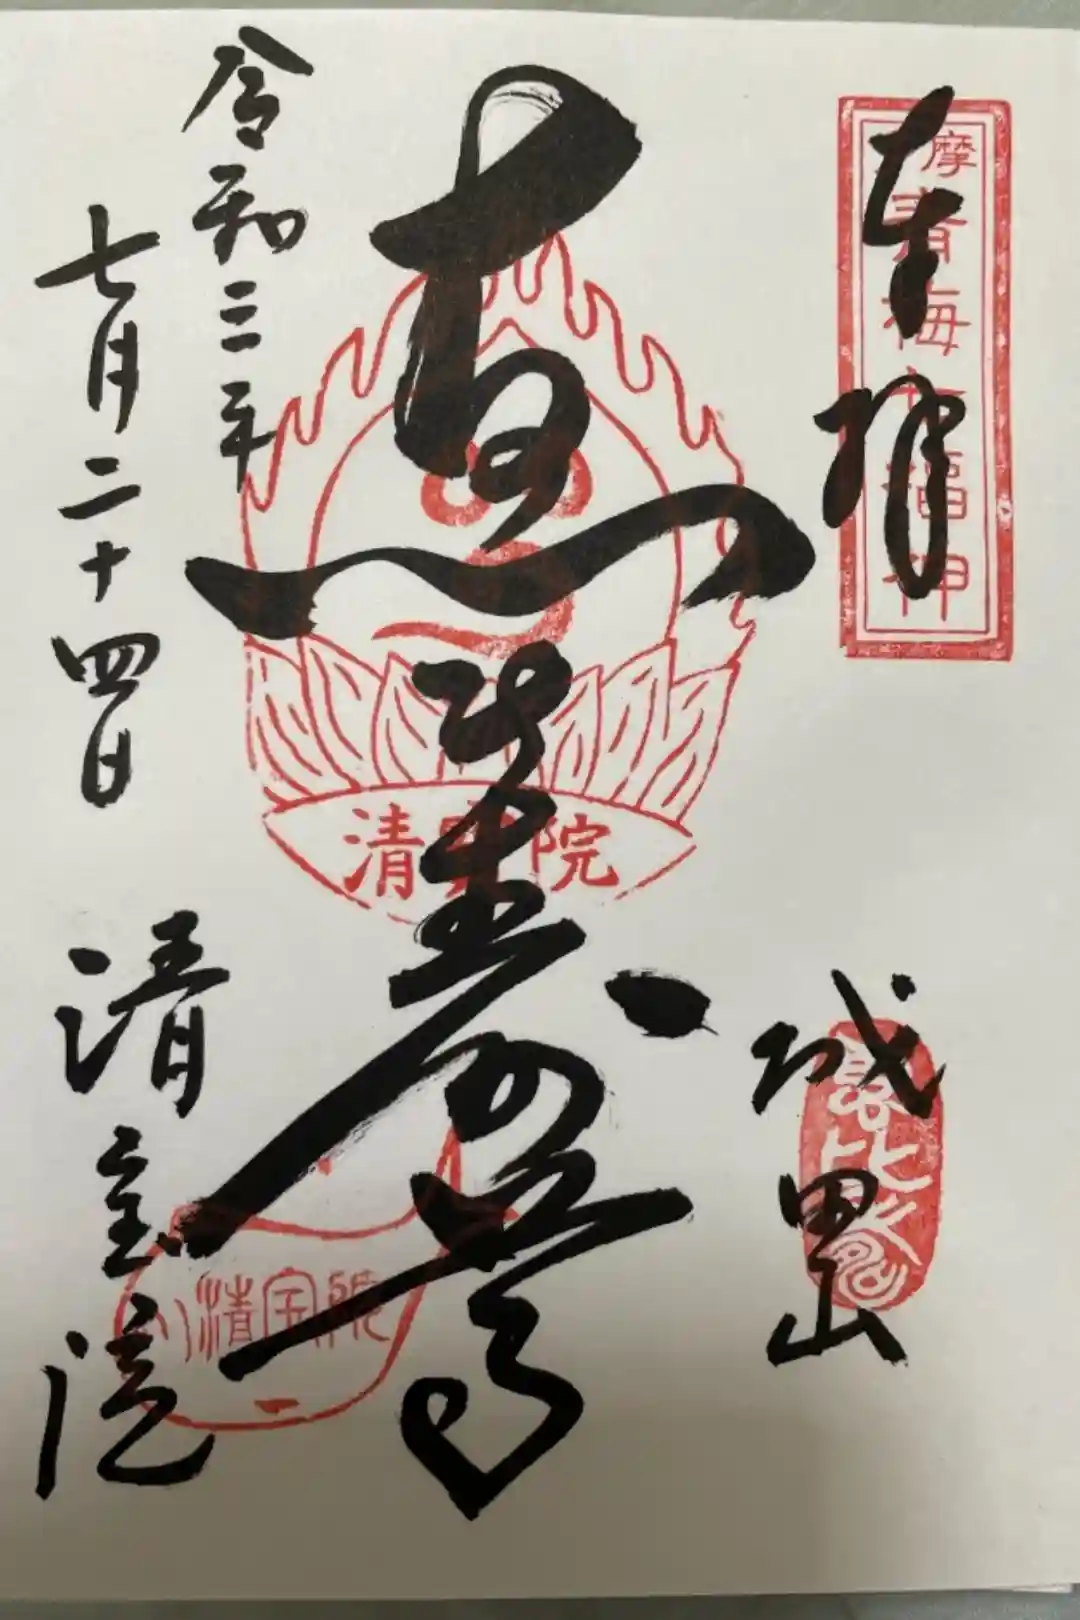 奉拝
摩青梅七福神
山
恵比寿尊
清寶院
清宝院
令和三年
七月二十四日
清宝院